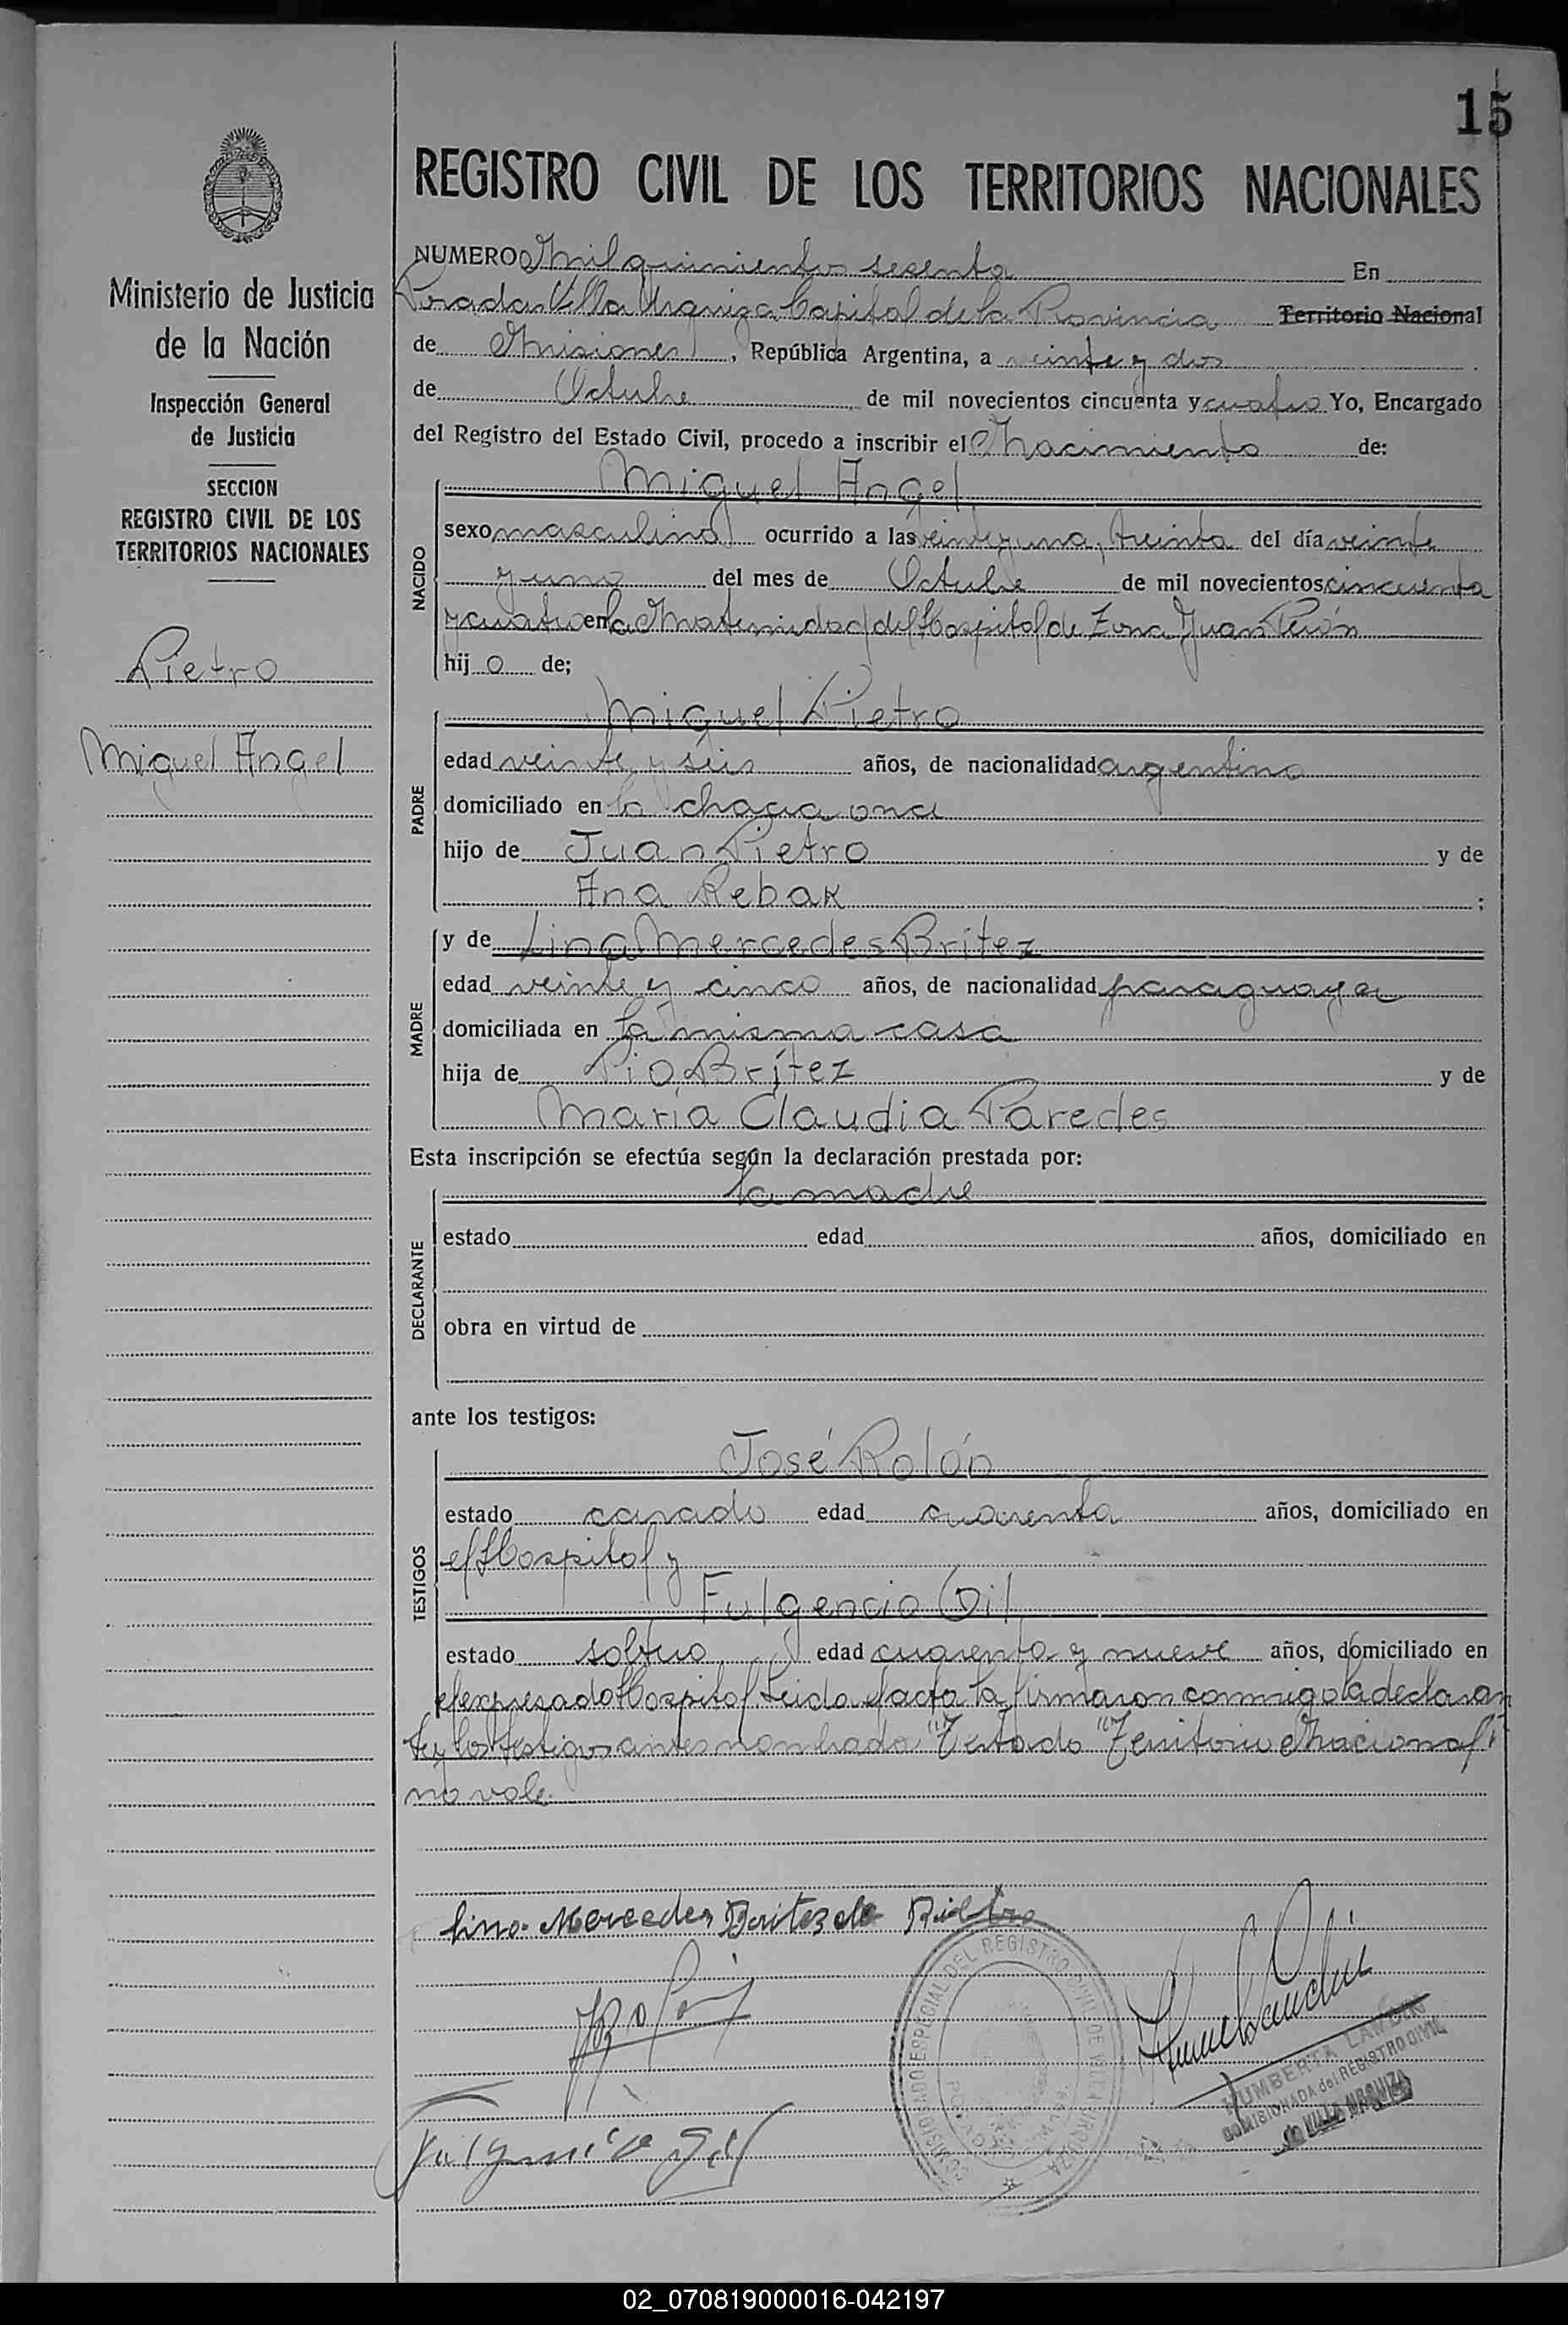 15
REGISTRO CIVIL DE LOS TERRITORIOS NACIONALES
Ministerio de Justicia
de la Nación
Inspección General
de Justicia
SECCION
REGISTRO CIVIL DE LOS
TERRITORIOS NACIONALES
Pietro
Miguel Angel
NUMERO Mil quinientos sesenta En
Posadas Villa Urquiza Capital de la Provincia Territorio Nacional
de Misiones, República Argentina, a veinte y dos
de Octubre de mil novecientos cincuenta y cuatro Yo, Encargado
del Registro del Estado Civil, procedo a inscribir el Nacimiento de:
NACIDO
Miguel Angel
sexo masculino ocurrido a las veinte y una, treinta del día veinte
y uno del mes de Octubre de mil novecientos cincuenta
y cuatro en la Maternidad del Hospital de Zona Juan Perón
hijo de;
PADRE
Miguel Pietro
edad veinte y seis años, de nacionalidad argentina
domiciliado en la chacra once
hijo de Juan Pietro y de
Ana Rebak ;
MADRE
y de Lina Mercedes Brítez
edad veinte y cinco años, de nacionalidad paraguaya
domiciliada en la misma casa
hija de Pio Brítez y de
María Claudia Paredes
Esta inscripción se efectúa según la declaración prestada por:
DECLARANTE
la madre
estado edad años, domiciliado en
obra en virtud de
ante los testigos:
TESTIGOS
José Rolón
estado casado edad cuarenta años, domiciliado en
el Hospital y
Fulgencio Gil
estado soltero edad cuarenta y nueve años, domiciliado en
el expresado Hospital. Leida el acta la firmaron conmigo la declaran
te y los testigos antes nombrado "Testado "Territorio Nacional"
no vale.
Lina Mercedes Britez de Pietro
JRolón
Fulgencio Gil
COMISIONADO ESPECIAL DEL REGISTRO CIVIL DE VILLA URQUIZA
HUMBERTA LANDIN
COMISIONADA del REGISTRO CIVIL
de VILLA URQUIZA
02_070819000016-042197